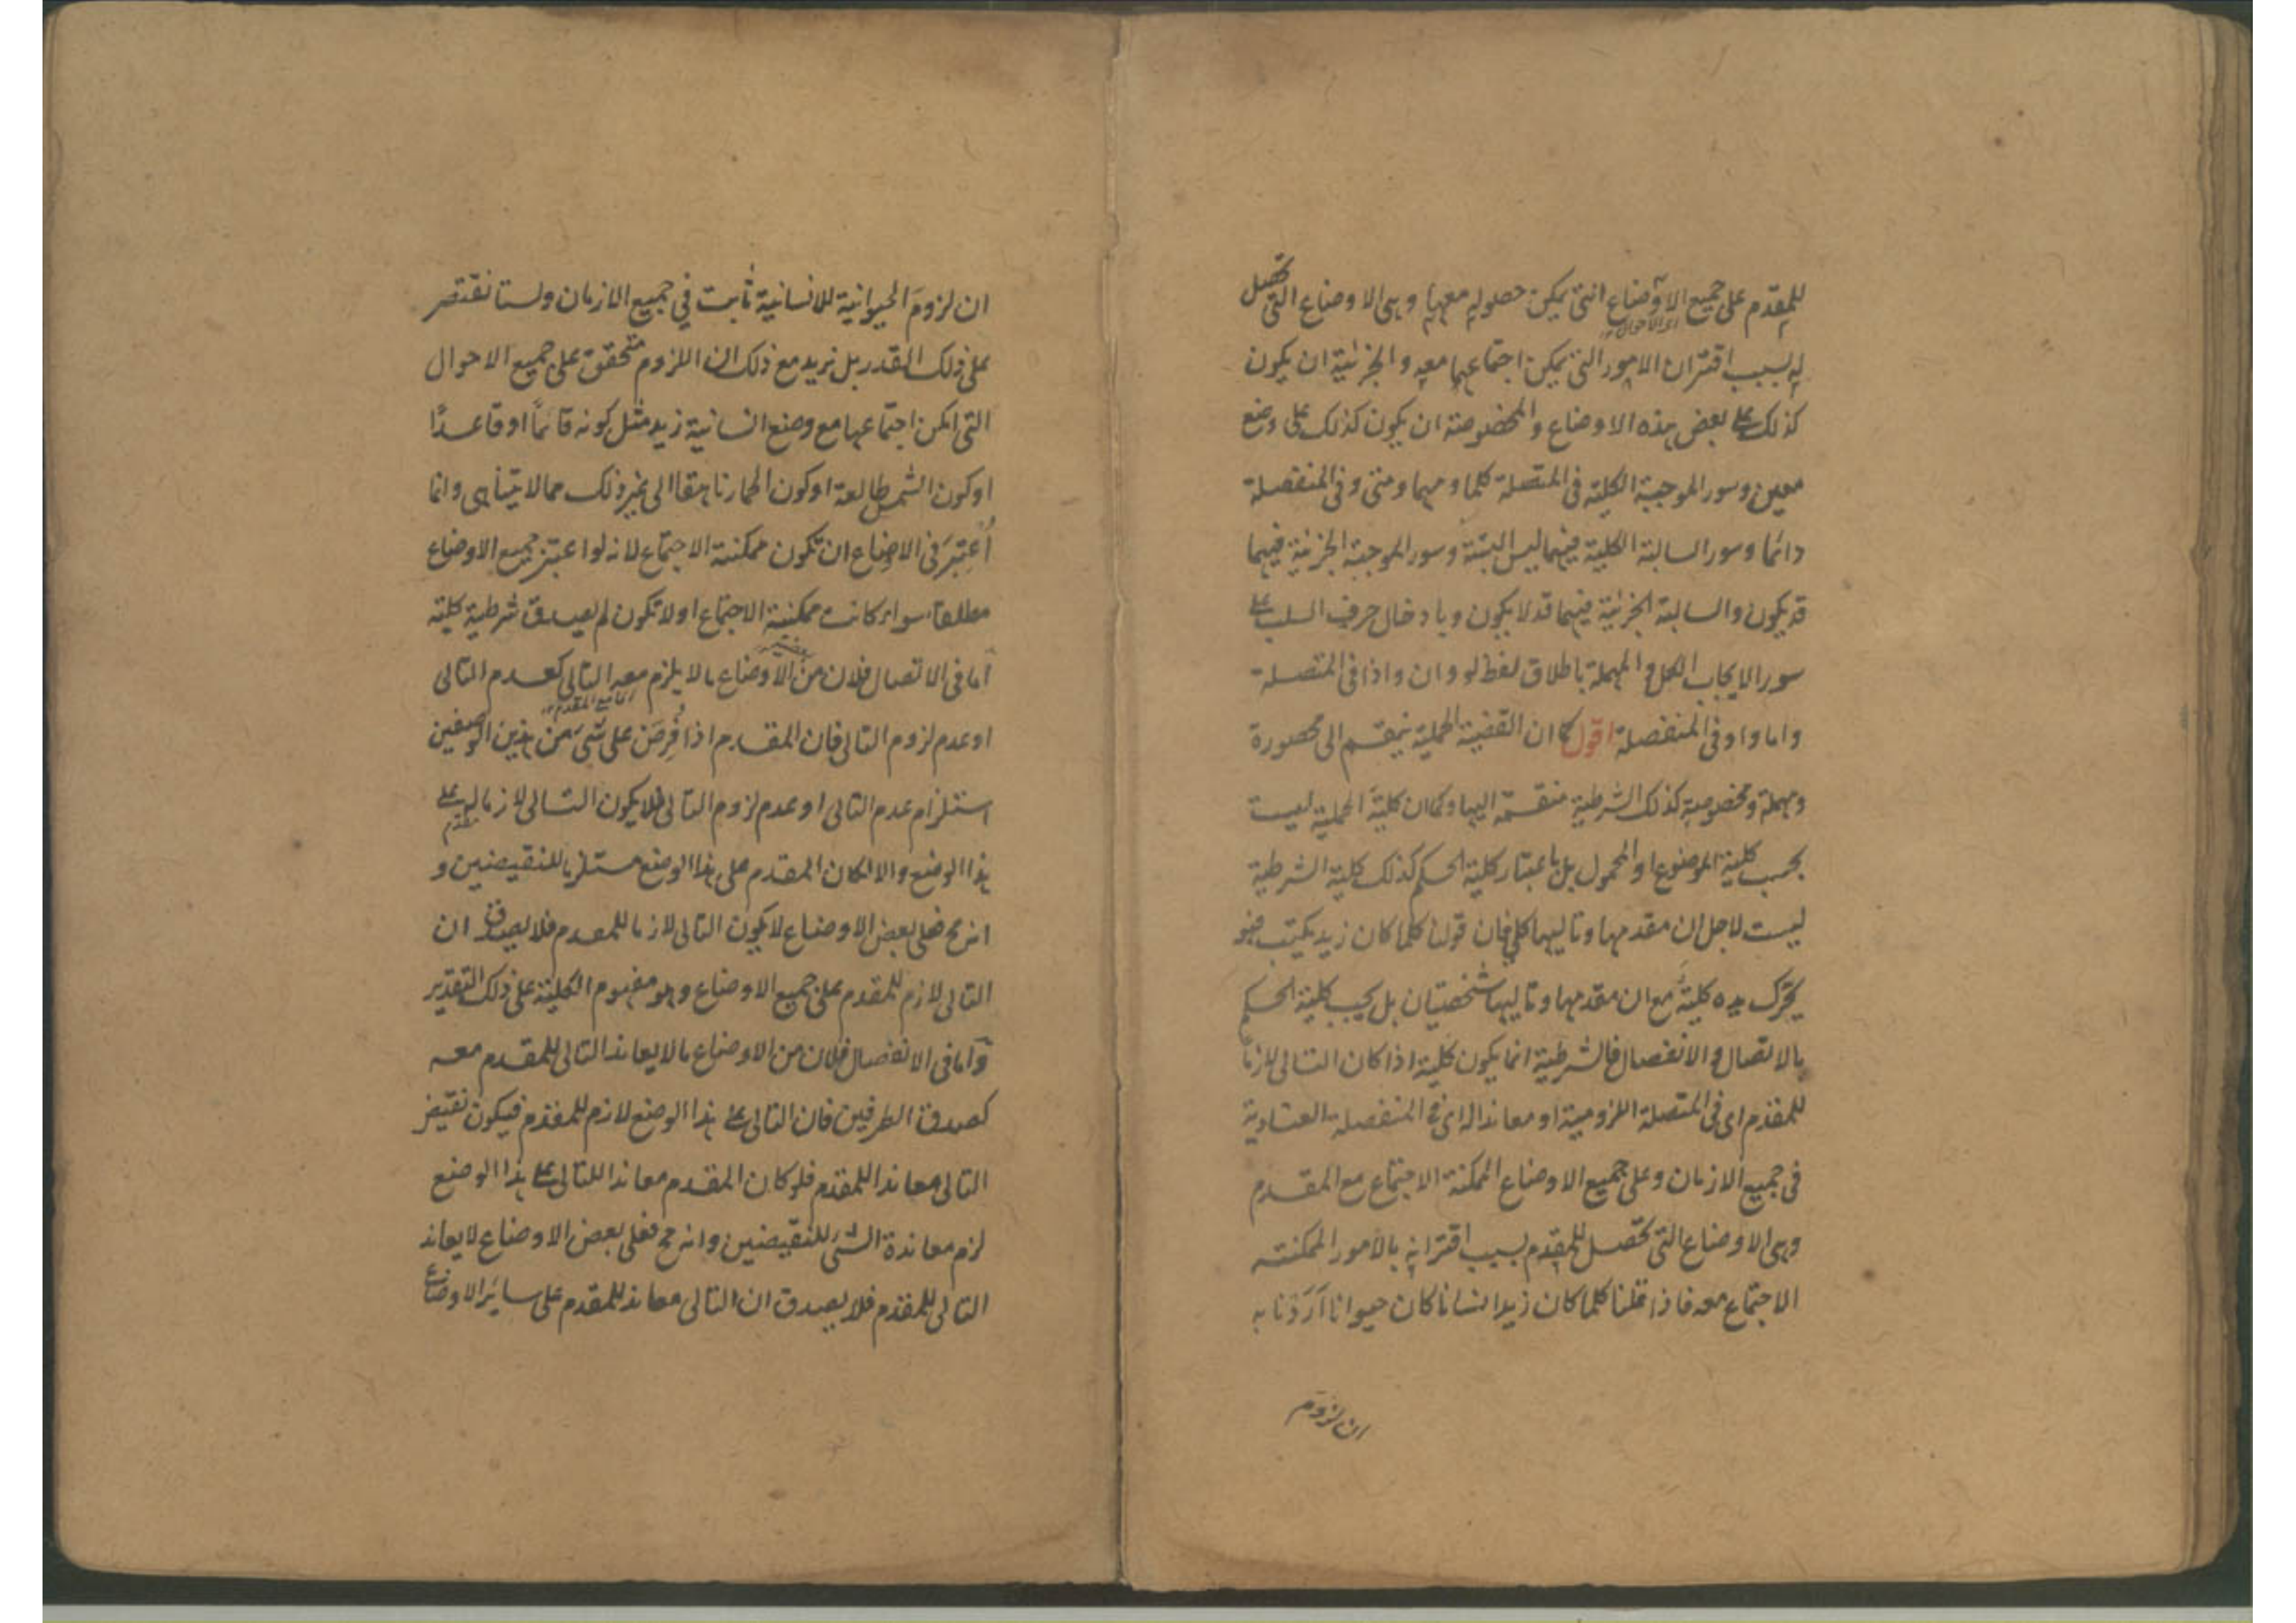 للمقدم على جميع الاوضاع التى يمكن حصوله معها وهى الاوضاع التى تحصل
اى الاحوال
له بسبب اقتران الامور التى يمكن اجتماعها معه والجزئية ان يكون
كذلك على بعض هذه الاوضاع والمخصوصة ان يكون كذلك على وضع
معين وسور الموجبة الكلية فى المتصلة كلما ومهما ومتى وفى المنفصلة
دائما وسور السالبة الكلية فيهما ليس البتة وسور الموجبة الجزئية فيهما
قد يكون والسالبة الجزئية فيهما قد لا يكون وبادخال حرف السلب على
سور الايجاب الكلى والمهملة باطلاق لفظ لو وان واذا فى المتصلة
واما واو فى المنفصلة اقول كما ان القضية الحملية ينقسم الى محصورة
ومهملة ومخصوصة كذلك الشرطية منقسمة اليها وكما ان كلية الحملية ليست
بحسب كلية الموضوع او المحمول بل باعتبار كلية الحكم كذلك كلية الشرطية
ليست لاجل ان مقدمها وتاليها كلى فان قولنا كلما كان زيد يكتب فهو
يحرك يده كلية مع ان مقدمها وتاليها شخصيتان بل بحسب كلية الحكم
بالاتصال والانفصال فالشرطية انما يكون كلية اذا كان التالى لازما
للمقدم اى فى المتصلة اللزومية او معاندا له اى فى المنفصلة العنادية
فى جميع الازمان وعلى جميع الاوضاع الممكنة الاجتماع مع المقدم
وهى الاوضاع التى تحصل للمقدم بسبب اقترانه بالامور الممكنة
الاجتماع معه فاذا قلنا كلما كان زيد انسانا كان حيوانا اَرَدْنا به
ان لزوم
ان لزومَ الحيوانية للانسانية ثابت في جميع الازمان ولسنا نقتصر
على ذلك القدر بل نريد مع ذلك ان اللزوم متحقق على جميع الاحوال
التى امكن اجتماعها مع وضع انسانية زيد مثل كونه قائمًا او قاعدًا
او كون الشمس طالعة او كون الحمار ناهقا الى غير ذلك مما لا يتناهى وانما
اُعتبِرَ فى الاوضاع ان تكون ممكنة الاجتماع لانه لو اعتبر جميع الاوضاع
مطلقا سواء كانت ممكنة الاجتماع او لا تكون لم يصدق شرطية كلية
اما فى الاتصال فلان من الاوضاع ما لا يلزم معه التالى كعدم التالى
او عدم لزوم التالى فان المقدم اذا فُرِضَ على شىء من هذين الوضعين
استلزام عدم التالى او عدم لزوم التالى فلا يكون التالى لازما له على
هذا الوضع والا لكان المقدم على هذا الوضع مستلزما للنقيضين و
انه مح فعلى بعض الاوضاع لا يكون التالى لازما للمقدم فلا يصدق ان
التالى لازم للمقدم على جميع الاوضاع وهو مفهوم الكلية على ذلك التقدير
واما فى الانفصال فلان من الاوضاع ما لا يعاند التالى للمقدم معه
كصدق الطرفين فان التالى على هذا الوضع لازم للمقدم فيكون نقيض
التالى معاندا للمقدم فلو كان المقدم معاندا للتالى على هذا الوضع
لزم معاندة الشىء للنقيضين وانه مح فعلى بعض الاوضاع لا يعاند
التالى للمقدم فلا يصدق ان التالى معاند للمقدم على سائر الاوضاع